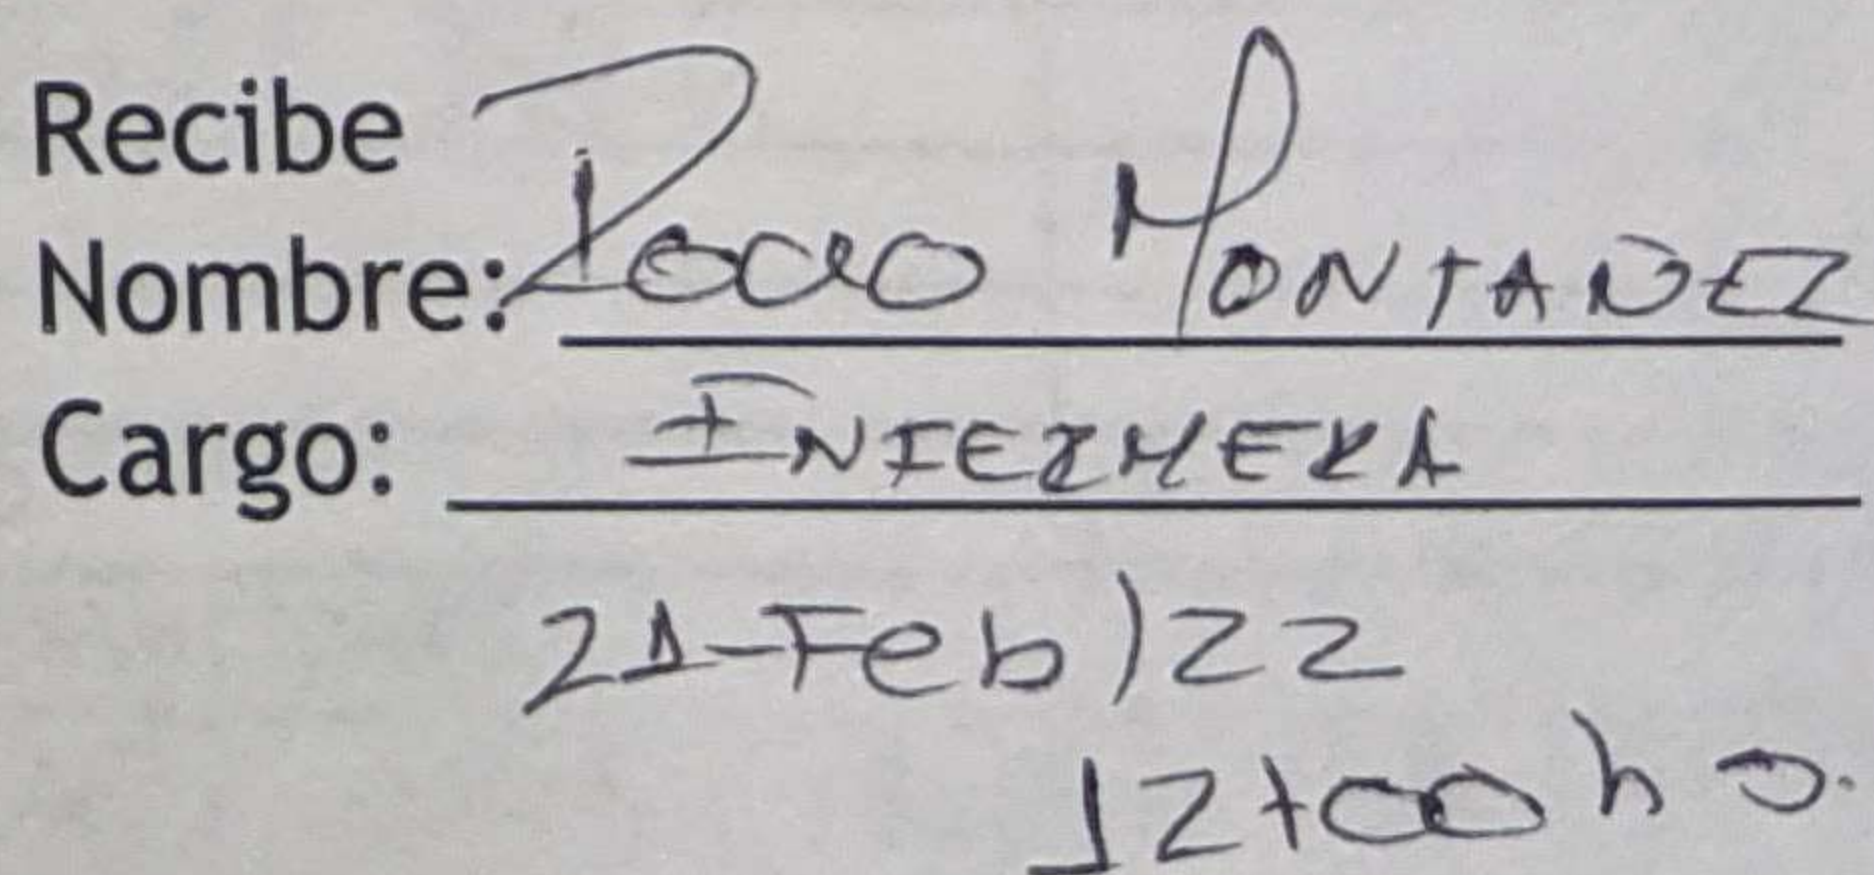 Recibe
Nombre: Rocio MONTAÑEZ
Cargo: ENFERMERA
21-Feb/22
12+00 hs.